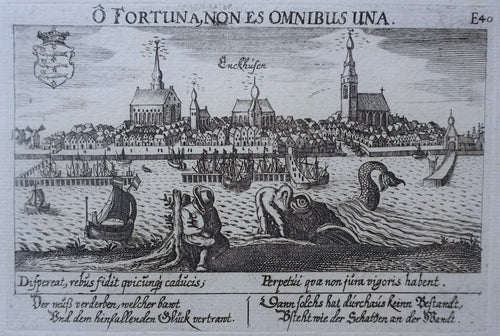 Ô FORTUNA, NON ES OMNIBUS UNA.
E40
Enckhúsen
Dispereat, rebus fidit qvicunq; caducis;
Perpetui quæ non jura vigoris habent.
Der müß verderben, welcher bawt
Vnd dem hinfallenden Glück vertrawt.
Dann solchs hat dürchaus keinn Bestandt,
Bsteht wie der Schatten an der Wandt.